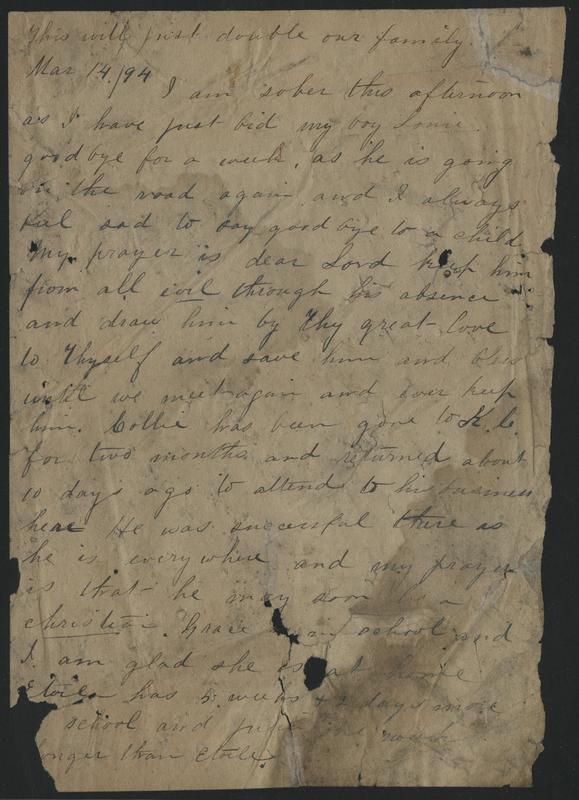 This will just double our family.
Mar 14/94
I am sober this afternoon
as I have just bid my boy Louie
goodbye for a week, as he is going
on the road again and I always
feel sad to say good bye to a child
My prayer is dear Lord keep him
from all evil through his absence
and draw him by Thy great love
to Thyself and save him and bless
until we meet again and ever keep
him. Collie has been gone to K.C.
for two months and returned about
10 days ago to attend to his business
here He was successful there as
he is everywhere and my prayer
is that he may soon be a
christian. Grace in school and
I am glad she is at home
Etoile has 5 weeks + 2 days more
school and one week
longer than Etoile.